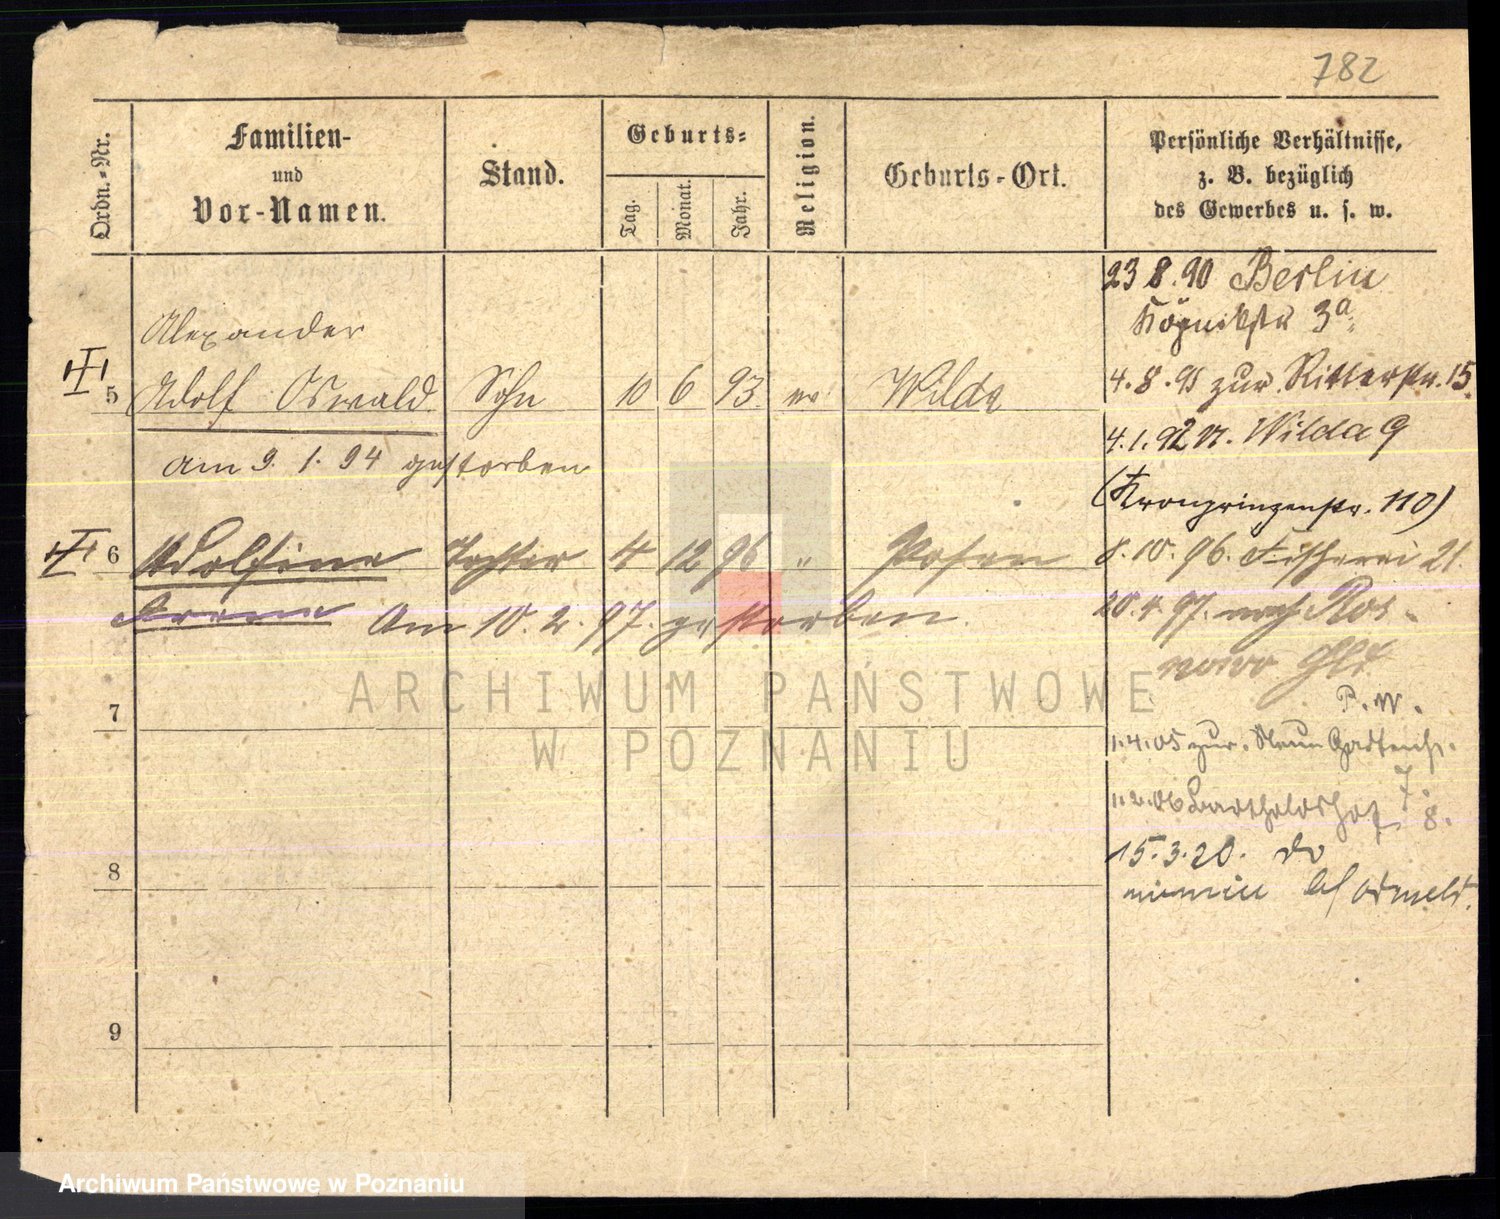 782
Ordn.-Nr.
Familien-
und
Vor-Namen.
Stand.
Geburts-
Tag.
Monat.
Jahr.
Religion.
Geburts-Ort.
Persönliche Verhältnisse,
z. B. bezüglich
des Gewerbes u. s. w.
Alexander
5 Adolf Oswald Sohn 10 6 93 ev Wilda
am 9. 1. 94 gestorben
6 Adolfine Tochter 4 12 96 " Posen
Am 10. 2. 97. gestorben.
7
8
9
23 8. 90 Berlin
3a
4. 8. 91 zur Ritterstr. 15
4. 1. 92 n. Wilda 9
(Kronprinzenstr. 110)
8. 10. 96. Fischerei 21.
20. 4. 97. nach Ros-
nowo
P. W.
1. 4. 05 zur.
7.
1. 2. 06 Bartholdshof
8.
15. 3. 20. do
ARCHIWUM PAŃSTWOWE
W POZNANIU
Archiwum Państwowe w Poznaniu